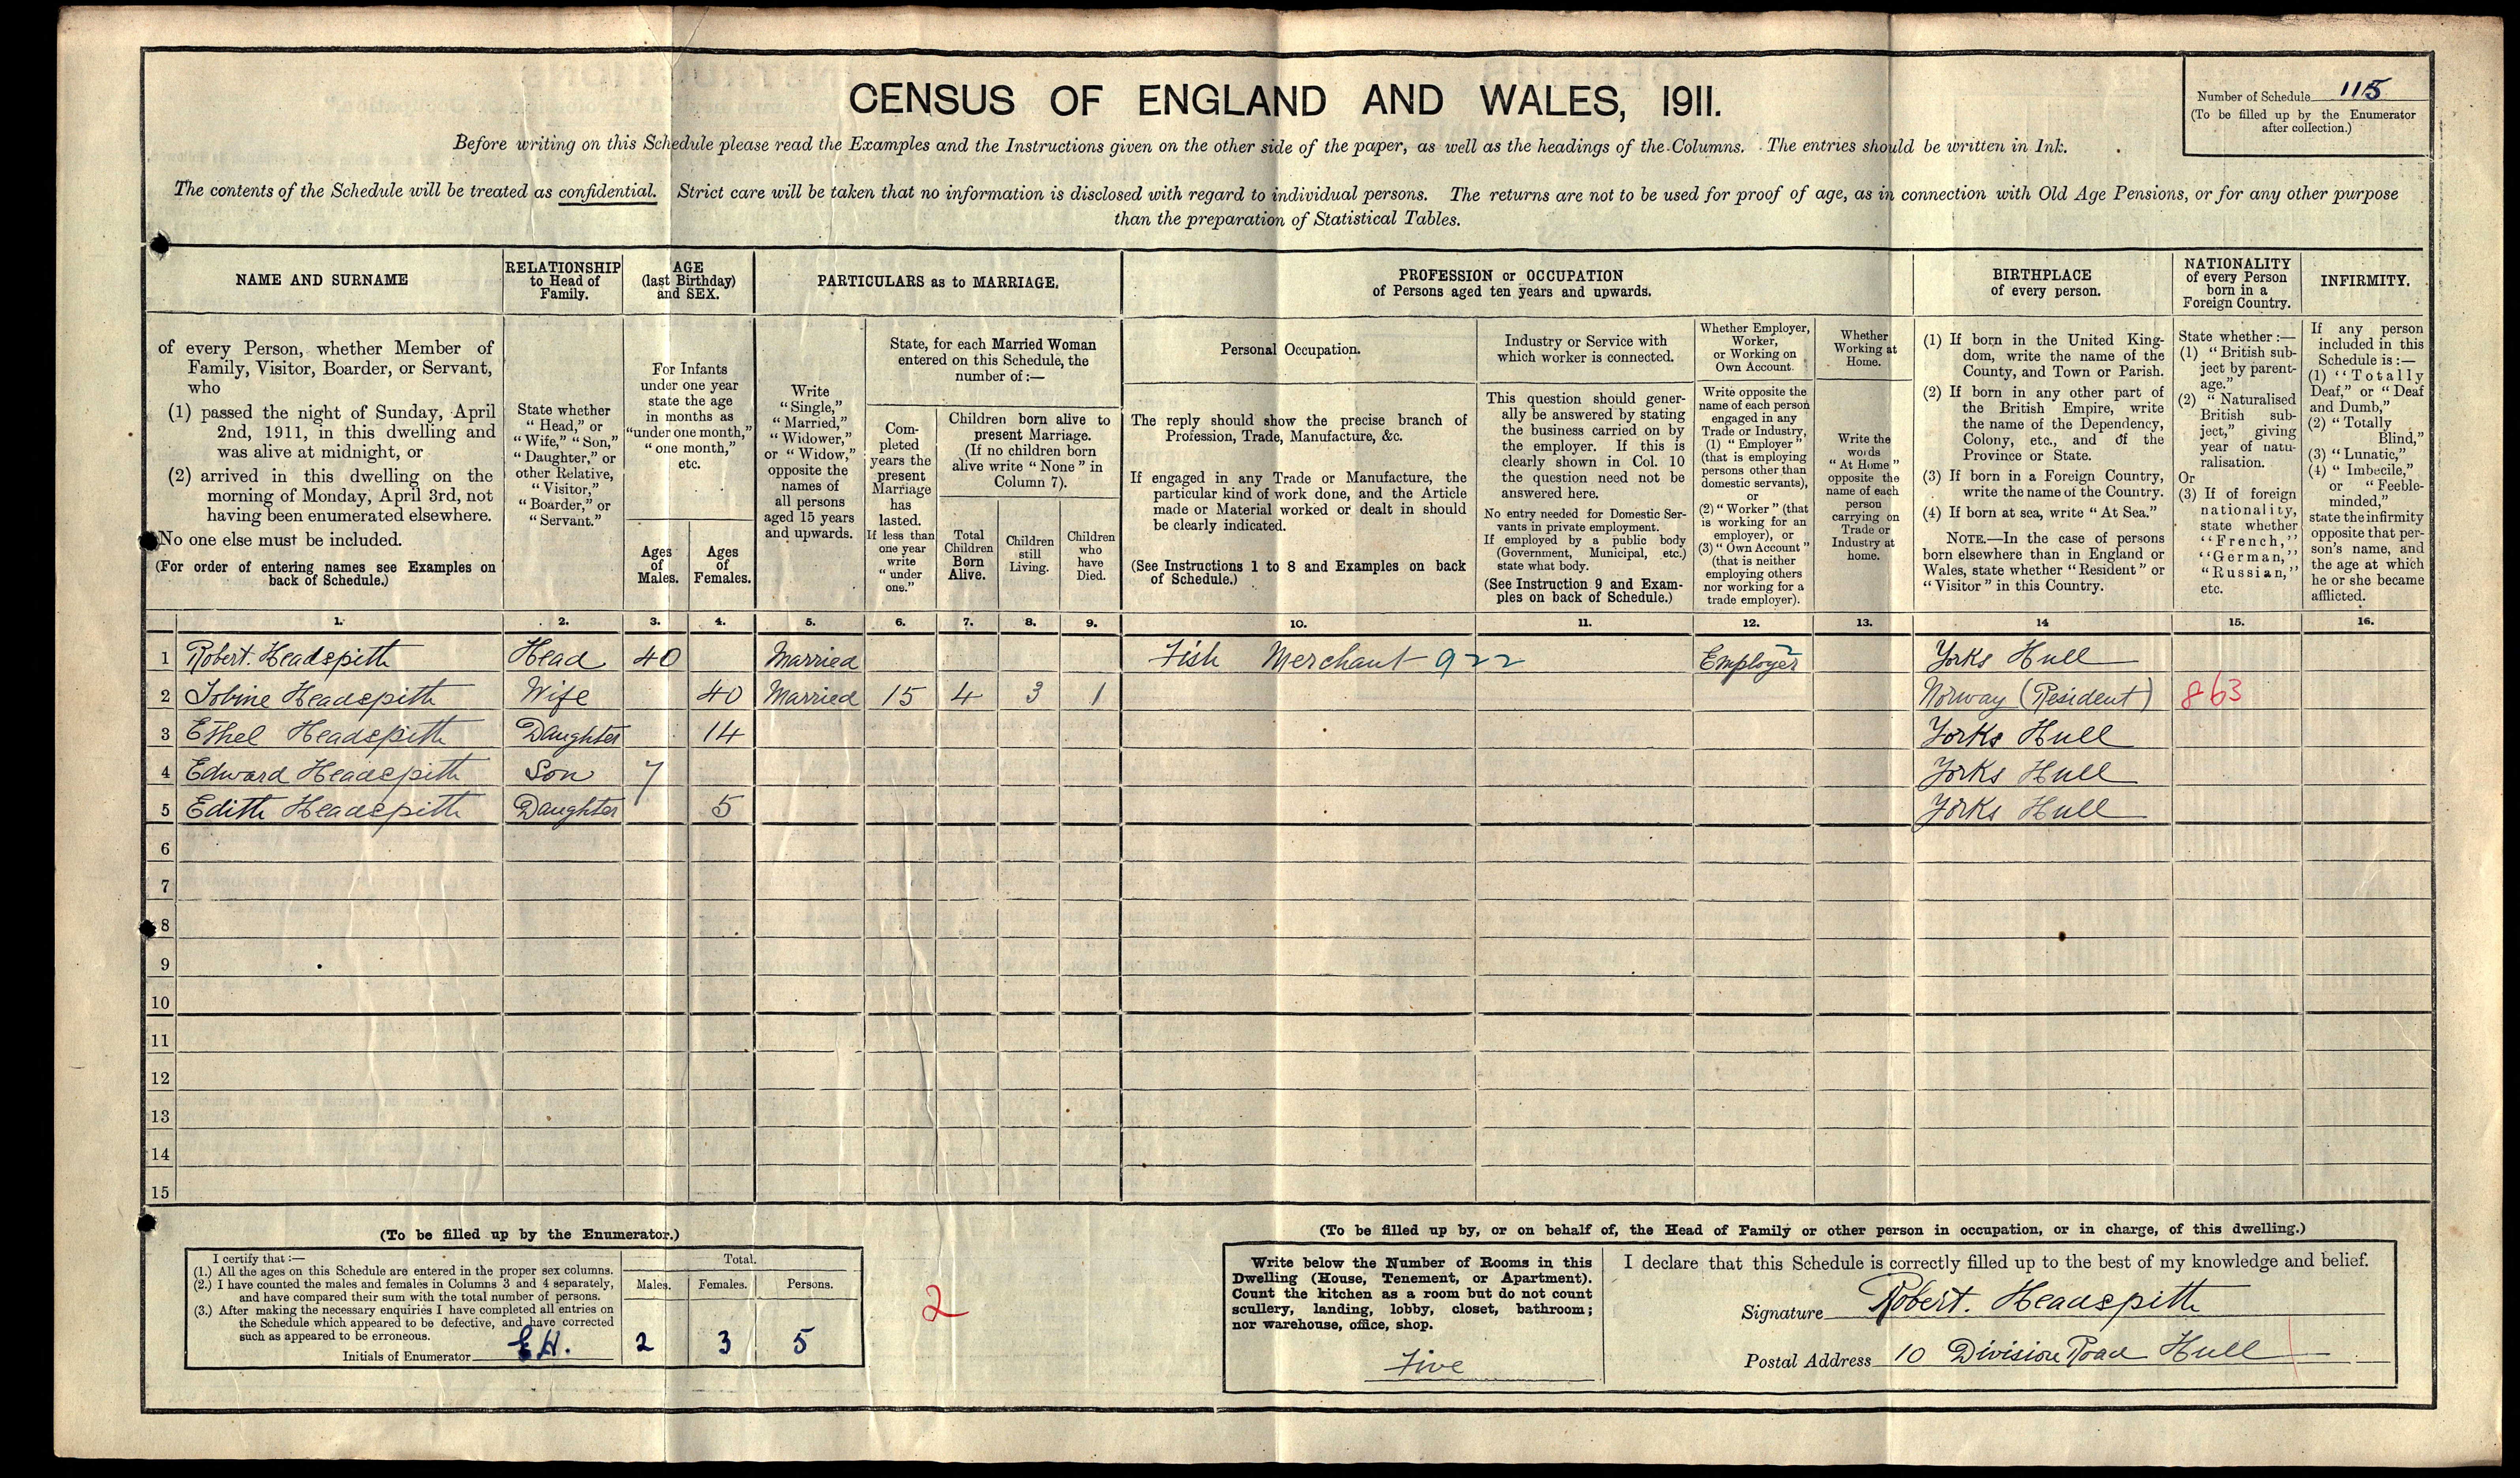 CENSUS OF ENGLAND AND WALES, 1911.
Number of Schedule 115
(To be filled up by the Enumerator
after collection.)
Before writing on this Schedule please read the Examples and the Instructions given on the other side of the paper, as well as the headings of the Columns. The entries should be written in Ink.
The contents of the Schedule will be treated as confidential. Strict care will be taken that no information is disclosed with regard to individual persons. The returns are not to be used for proof of age, as in connection with Old Age Pensions, or for any other purpose
than the preparation of Statistical Tables.
NAME AND SURNAME
of every Person, whether Member of
Family, Visitor, Boarder, or Servant,
who
(1) passed the night of Sunday, April
2nd, 1911, in this dwelling and
was alive at midnight, or
(2) arrived in this dwelling on the
morning of Monday, April 3rd, not
having been enumerated elsewhere.
No one else must be included.
(For order of entering names see Examples on
back of Schedule.)
RELATIONSHIP
to Head of
Family.
State whether
"Head," or
"Wife," "Son,"
"Daughter," or
other Relative,
"Visitor,"
"Boarder," or
"Servant."
AGE
(last Birthday)
and SEX.
For Infants
under one year
state the age
in months as
"under one month,"
"one month,"
etc.
Ages
of
Males.
Ages
of
Females.
PARTICULARS as to MARRIAGE.
Write
"Single,"
"Married,"
"Widower,"
or "Widow,"
opposite the
names of
all persons
aged 15 years
and upwards.
State, for each Married Woman
entered on this Schedule, the
number of :—
Com-
pleted
years the
present
Marriage
has
lasted.
If less than
one year
write
"under
one."
Children born alive to
present Marriage.
(If no children born
alive write "None" in
Column 7).
Total
Children
Born
Alive.
Children
still
Living.
Children
who
have
Died.
PROFESSION or OCCUPATION
of Persons aged ten years and upwards.
Personal Occupation.
The reply should show the precise branch of
Profession, Trade, Manufacture, &c.
If engaged in any Trade or Manufacture, the
particular kind of work done, and the Article
made or Material worked or dealt in should
be clearly indicated.
(See Instructions 1 to 8 and Examples on back
of Schedule.)
Industry or Service with
which worker is connected.
This question should gener-
ally be answered by stating
the business carried on by
the employer. If this is
clearly shown in Col. 10
the question need not be
answered here.
No entry needed for Domestic Ser-
vants in private employment.
If employed by a public body
(Government, Municipal, etc.)
state what body.
(See Instruction 9 and Exam-
ples on back of Schedule.)
Whether Employer,
Worker,
or Working on
Own Account.
Write opposite the
name of each person
engaged in any
Trade or Industry,
(1) "Employer"
(that is employing
persons other than
domestic servants),
or
(2) "Worker" (that
is working for an
employer), or
(3) "Own Account"
(that is neither
employing others
nor working for a
trade employer).
Whether
Working at
Home.
Write the
words
"At Home"
opposite the
name of each
person
carrying on
Trade or
Industry at
home.
BIRTHPLACE
of every person.
(1) If born in the United King-
dom, write the name of the
County, and Town or Parish.
(2) If born in any other part of
the British Empire, write
the name of the Dependency,
Colony, etc., and of the
Province or State.
(3) If born in a Foreign Country,
write the name of the Country.
(4) If born at sea, write "At Sea."
NOTE.—In the case of persons
born elsewhere than in England or
Wales, state whether "Resident" or
"Visitor" in this Country.
NATIONALITY
of every Person
born in a
Foreign Country.
State whether :—
(1) "British sub-
ject by parent-
age."
(2) "Naturalised
British sub-
ject," giving
year of natu-
ralisation.
Or
(3) If of foreign
nationality,
state whether
"French,"
"German,"
"Russian,"
etc.
INFIRMITY.
If any person
included in this
Schedule is :—
(1) "Totally
Deaf," or "Deaf
and Dumb,"
(2) "Totally
Blind,"
(3) "Lunatic,"
(4) "Imbecile,"
or "Feeble-
minded,"
state the infirmity
opposite that per-
son's name, and
the age at which
he or she became
afflicted.
1. 2. 3. 4. 5. 6. 7. 8. 9. 10. 11. 12. 13. 14 15. 16.
1 Robert. Headspith Head 40 Married Fish Merchant 922 Employer 2 Yorks Hull
2 Tobine Headspith Wife 40 Married 15 4 3 1 Norway (Resident) 863
3 Ethel Headspith Daughter 14 Yorks Hull
4 Edward Headspith Son 7 Yorks Hull
5 Edith Headspith Daughter 5 Yorks Hull
6
7
8
9
10
11
12
13
14
15
(To be filled up by the Enumerator.)
I certify that :—
(1.) All the ages on this Schedule are entered in the proper sex columns.
(2.) I have counted the males and females in Columns 3 and 4 separately,
and have compared their sum with the total number of persons.
(3.) After making the necessary enquiries I have completed all entries on
the Schedule which appeared to be defective, and have corrected
such as appeared to be erroneous.
Initials of Enumerator E.H.
Total.
Males. Females. Persons.
2 3 5
2
(To be filled up by, or on behalf of, the Head of Family or other person in occupation, or in charge, of this dwelling.)
Write below the Number of Rooms in this
Dwelling (House, Tenement, or Apartment).
Count the kitchen as a room but do not count
scullery, landing, lobby, closet, bathroom;
nor warehouse, office, shop.
Five
I declare that this Schedule is correctly filled up to the best of my knowledge and belief.
Signature Robert. Headspith
Postal Address 10 Division Road Hull